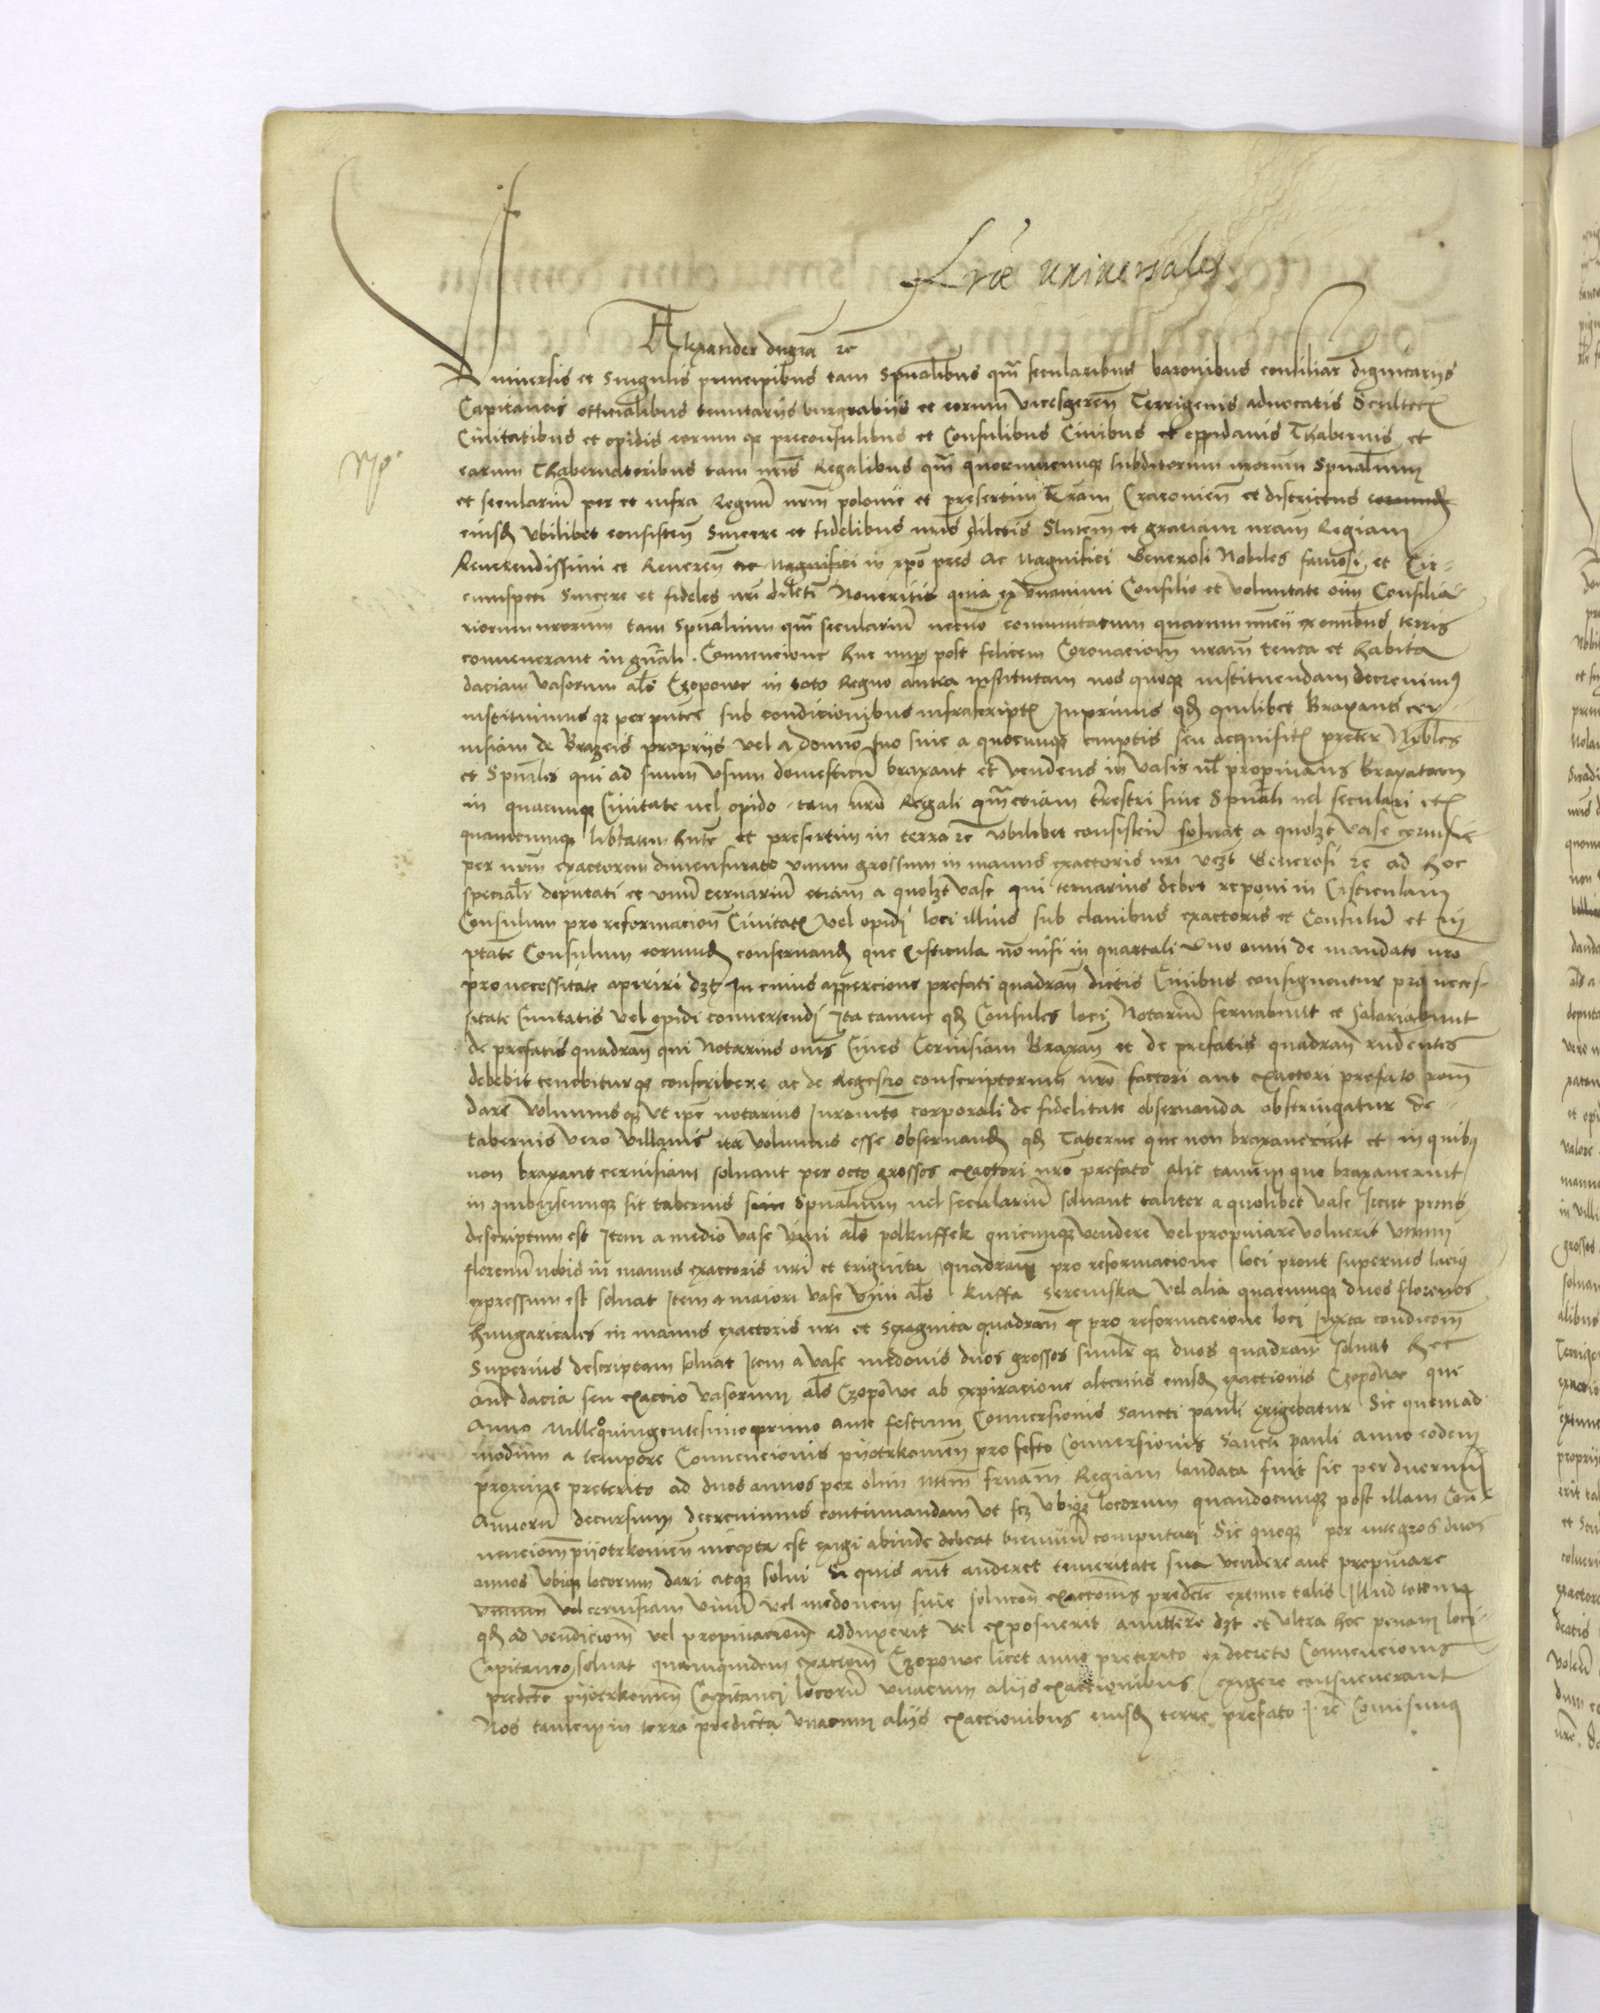 Lrae universales
Alexander dei gra etc
Universis et Singulis principibus tam Spualibus qm secularibus baronibus consiliar dignitarys
Capitaneis officialibus tenutarys burgrabys et eorum vicesgeren Terrigenis advocatis Scultet
Civitatibus et opidis eorum qz preconsulibus et Consulibus Civibus et oppidanis Thabernis et
earum Thabernatoribus tam nris Regalibus qm quorumcumqz subditorum nrorum Spualium
et seculariu per et infra Regnu nrm polonie et presertim Tram Cracovien et districtus
eiusd ubilibet consisten Sincere et fidelibus nris dilectis Slutem et graciam nram Regiam
Reverendissimi et Reveren in xpo pres ac Magnifici Generosi Nobiles famosi et Cir-
cumspecti Sincere et fideles nri dilecti Noveritis quia ex unanimi Consilio et voluntate oim Consilia-
riorum nrorum tam Spualium qm seculariu necno comunitatum quarum nuncii ex omnibus terris
convenerant in gnrali Convencione huc nup post felicem Coronaciom nram tenta et habita
daciam vasorum als Czopowe in toto Regno antea institutam nos quoqz instituendam decrevimus
instituimus qz per pntes sub condicionibus infrascriptis Inprimis qd quilibet Braxans cer-
visiam de Brazeis propriis vel a domno suo sive a quocumqz emptis seu acquisitis preter Nobles
et Spuales qui ad suum usum domesticu braxant et vendens in vasis vel propinans braxatam
in quacumqz Civitate vel opido tam nro Regali qm etiam trestri sive Spuali vel seculari etc
quamcumqz libtatem hnte et presertim in terra etc ubilibet consisten solvat a quolzt vase cervisie
per nrm exactorem dimensurato unum grossum in manus exactoris nri vczt Generosi etc ad hoc
speciali deputati et unu ternariu etiam a quolzt vase qui ternarius debet reponi in Cisticulam
Consulum pro reformacion Civitatis vel opidi loci illius sub clavibus exactoris et Consulu et in
ptate Consulum eorumd conservand que Cisticula no nisi in quartali uno anni de mandato nro
pro necessitate aperiri dzt In cuius appercione prefati quadran dictis Civibus consignentur pro neces-
sitate Civitatis vel opidi convertendi Ita tamen qd Consules loci Notariu servabunt et salariabunt
de prefatis quadran qui Notarius omnis Cives Cervisiam Braxan et de prefatis quadran rndentes
debebit tenebiturqz conscribere ac de Regestro conscriptorum nro factori aut exactori prefato rom
dare volumusqz ut ipe notarius Juramto corporali de fidelitate observanda obstringatur De
tabernis vero villanis ita volumus esse observand qd Taberne que non braxaverint et in quibus
non braxans cervisiam solvant per octo grossos exactori nro prefato alie tamen que braxaverint
in quibuscumqz sit tabernis Spualium vel seculariu solvant taliter a quolibet vase sicut prius
descriptum est Item a medio vase vini als polkuffek quicumqz vendere vel propinare voluerit unum
florenu nobis in manus exactoris nri et triginta quadran pro reformacione loci prout superius lacius
expressum est solvat Item a maiori vase vini als Kuffa Seremska vel alia quacumqz duos florenos
hungaricales in manus exactoris nri et Sexaginta quadran pro reformacione loci juxta condicom
Superius descriptam solvat Item a vase medonis duos grossos similr qz duos quadran solvat hec
aut dacia seu exactio vasorum als Czopowe ab expiracione alterius eiusd exactionis Czopowe que
Anno Millo quingentesimo primo ante festum Conversionis Sancti pauli exigebatur Sic quemad
modum a tempore Convencionis pyotrkovien pro festo Conversionis Sancti pauli anno eodem
proxime preterito ad duos annos per olim Mtem frnam Regiam laudata fuit sic per duorum
Annoru decursum decrevimus continuandam ut scz ubiqz locorum quandocumqz post illam Con-
venciom pyotrkovien incepta est exigi abinde debeat bienniu computari Sic quoqz per integros duos
annos ubiqz locorum dari atqz solvi Si quis aut auderet temeritate sua vendere aut propinare
vel cervisiam vinu vel medonem sine solucon exactonis predicte extunc talis Illud totum
qd ad vendiciom vel propinaciom adduxerit vel exposuerit amittere dzt et ultra hoc penam loci
Capitaneo solvat quamquidem exactiom Czopowe licet anno preterito ex decreto Convencionis
predicte pyotrkovien Capitanei locoru unacum aliis exactionibus exigere consueverant
Nos tamen in terra predicta unacum aliis exaccionibus eiusd terre prefato J etc Comisimus